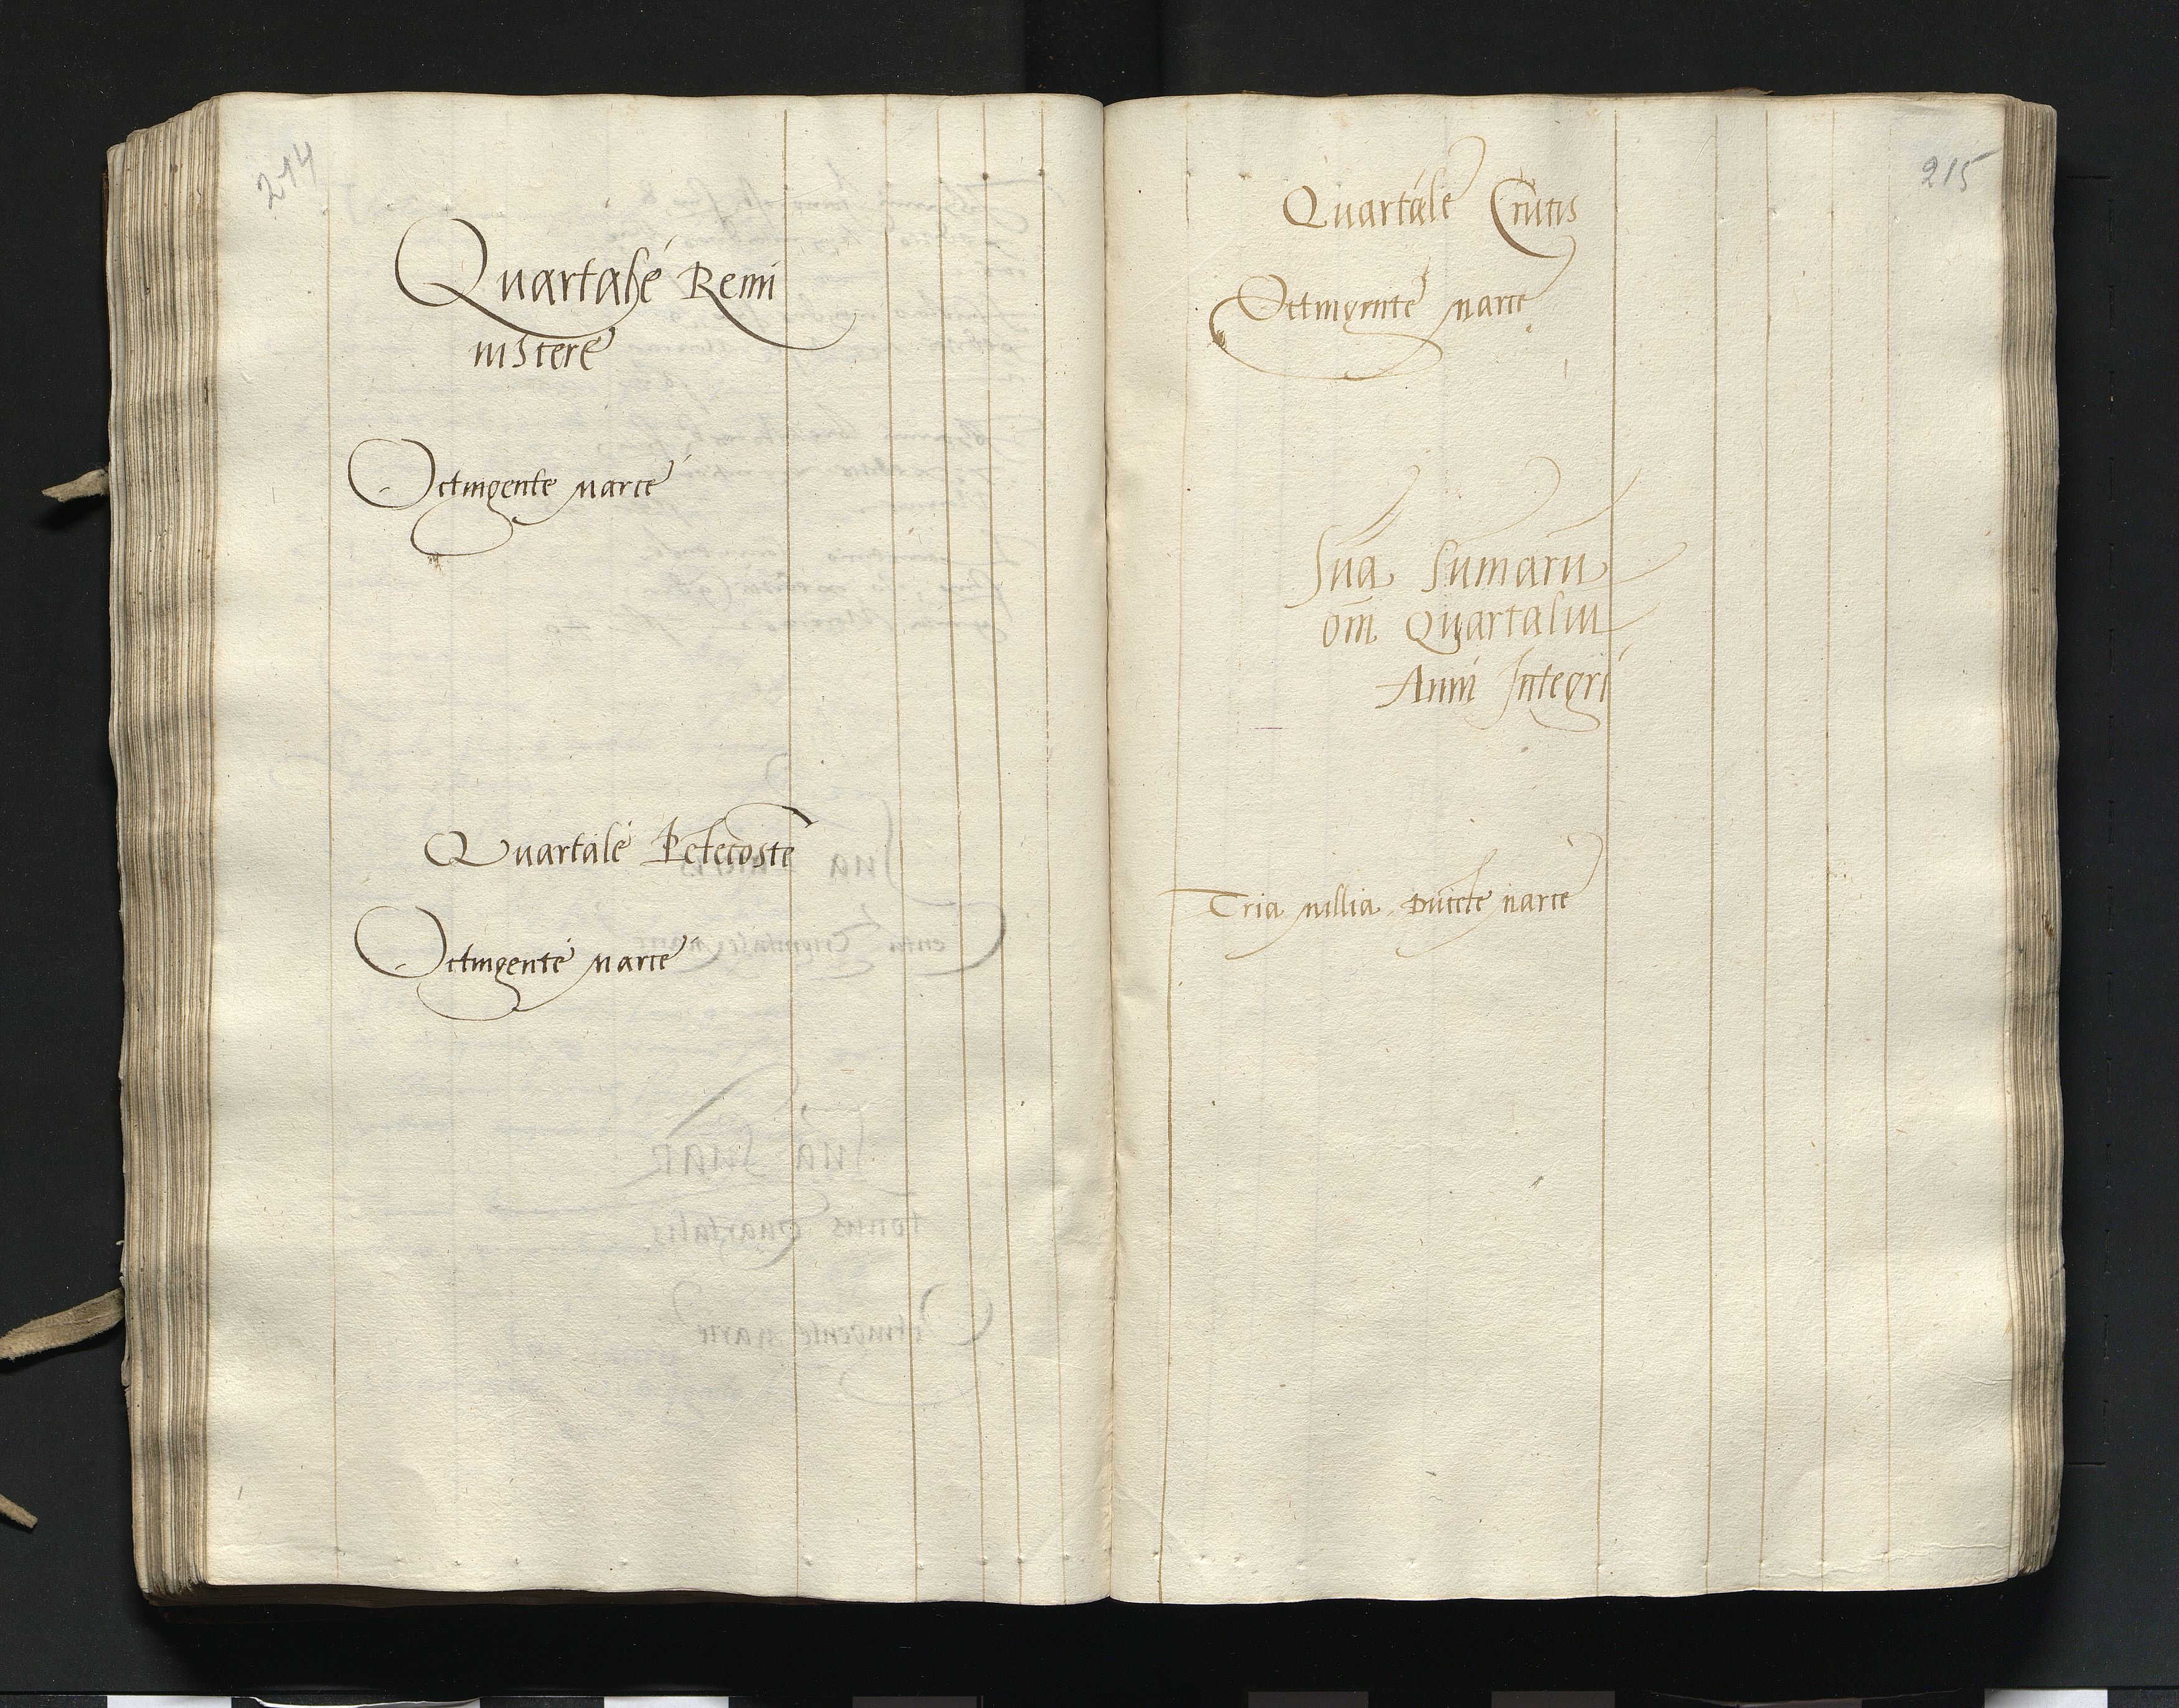 214
Quartale Remi
niscere
Octingente marce
Quartale Petecoste
Octingente marce
215
Quartale Crucis
Octingente marce
Sua Sumaru
om Quartaliu
Anni Integri
Tria millia ducete marce